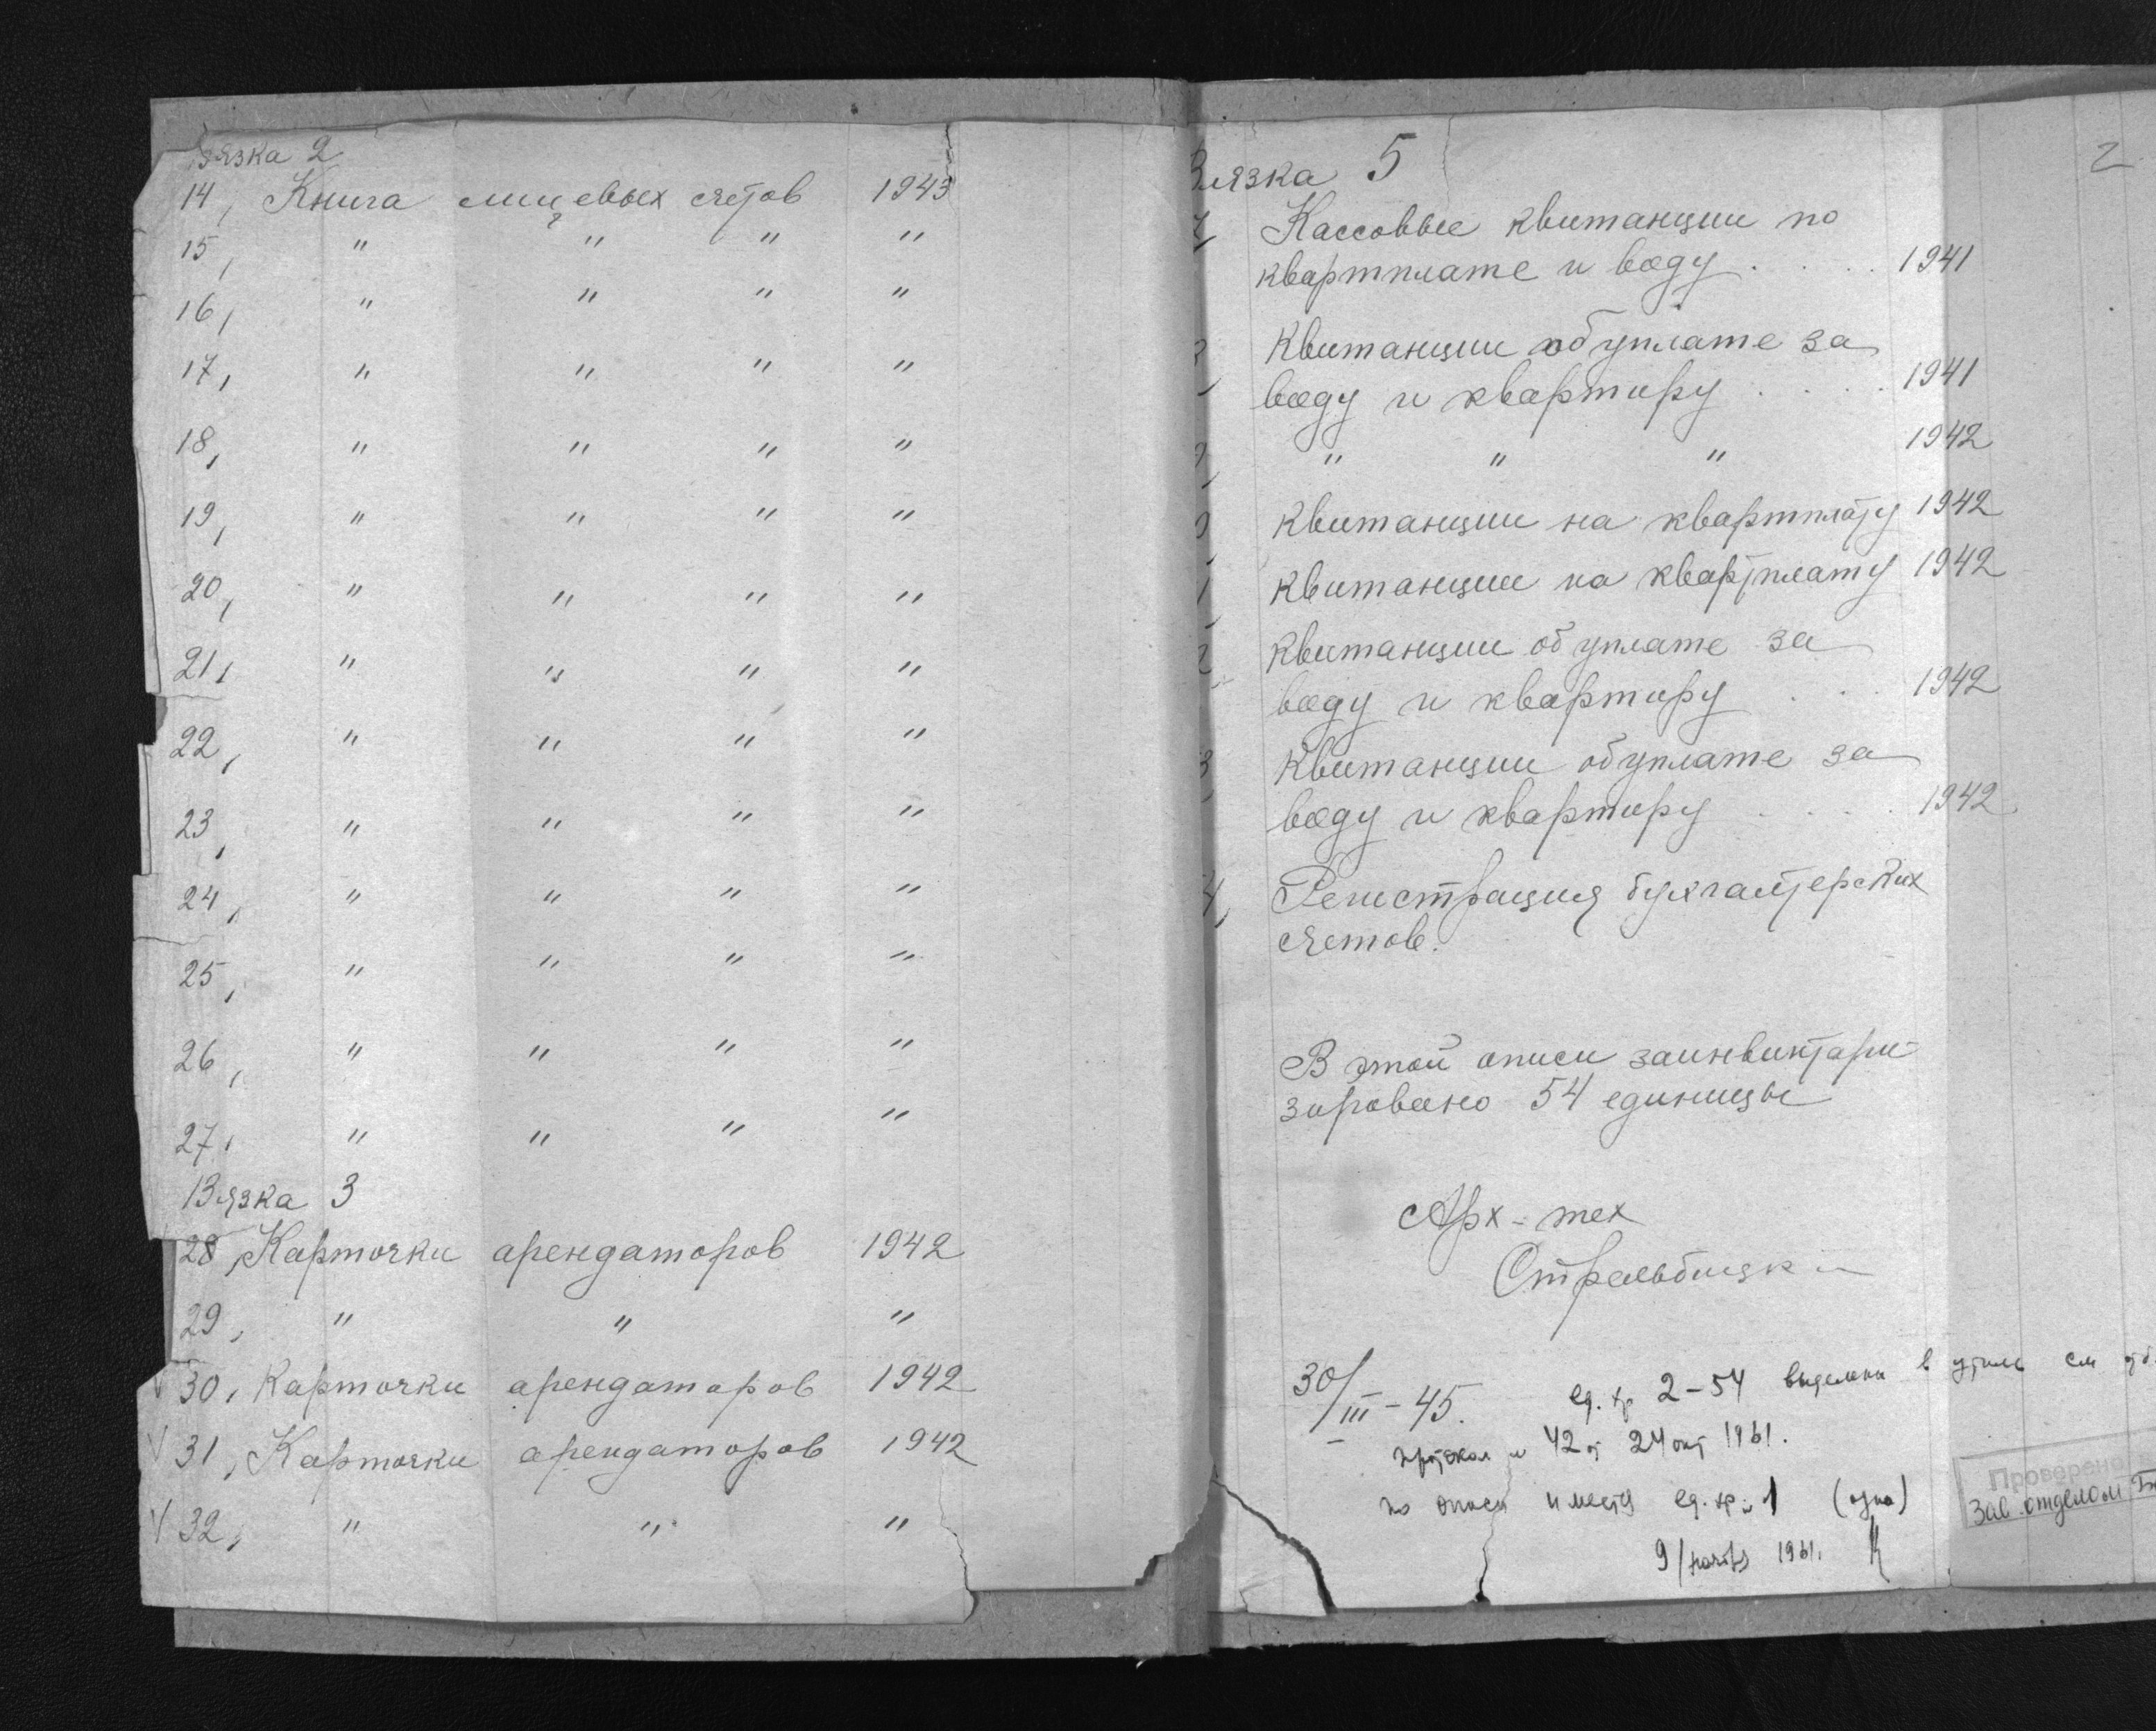 Вязка 2
14, Книга лицевых счетов 1943
15, " " " "
16, " " " "
17, " " " "
18, " " " "
19, " " " "
20, " " " "
21, " " " "
22, " " " "
23, " " " "
24, " " " "
25, " " " "
26, " " " "
27, " " " "
Вязка 3
28, Карточки арендаторов 1942
29, " " "
√ 30, Карточки арендаторов 1942
√ 31, Карточки арендаторов 1942
√ 32, " " "
2
Вязка 5
Кассовые квитанции по
квартплате и воду . . . . 1941
Квитанции об уплате за
воду и квартиру . . . . 1941
" " " 1942
Квитанции на квартплату 1942
Квитанции на квартплату 1942
Квитанции об уплате за
воду и квартиру . . . 1942
Квитанции об уплате за
воду и квартиру . . . . 1942
Регистрация бухгалтерских
счетов.
В этой описи заинвинтари-
зировано 54 единицы
Арх-тех
30/III-45.
ед. хр 2-54 выделены в утиль см
протокол № 42 от 24 окт 1961.
по описи имеется ед. хр. 1 (одна)
9/ 1961.
Проверено
Зав. отделом